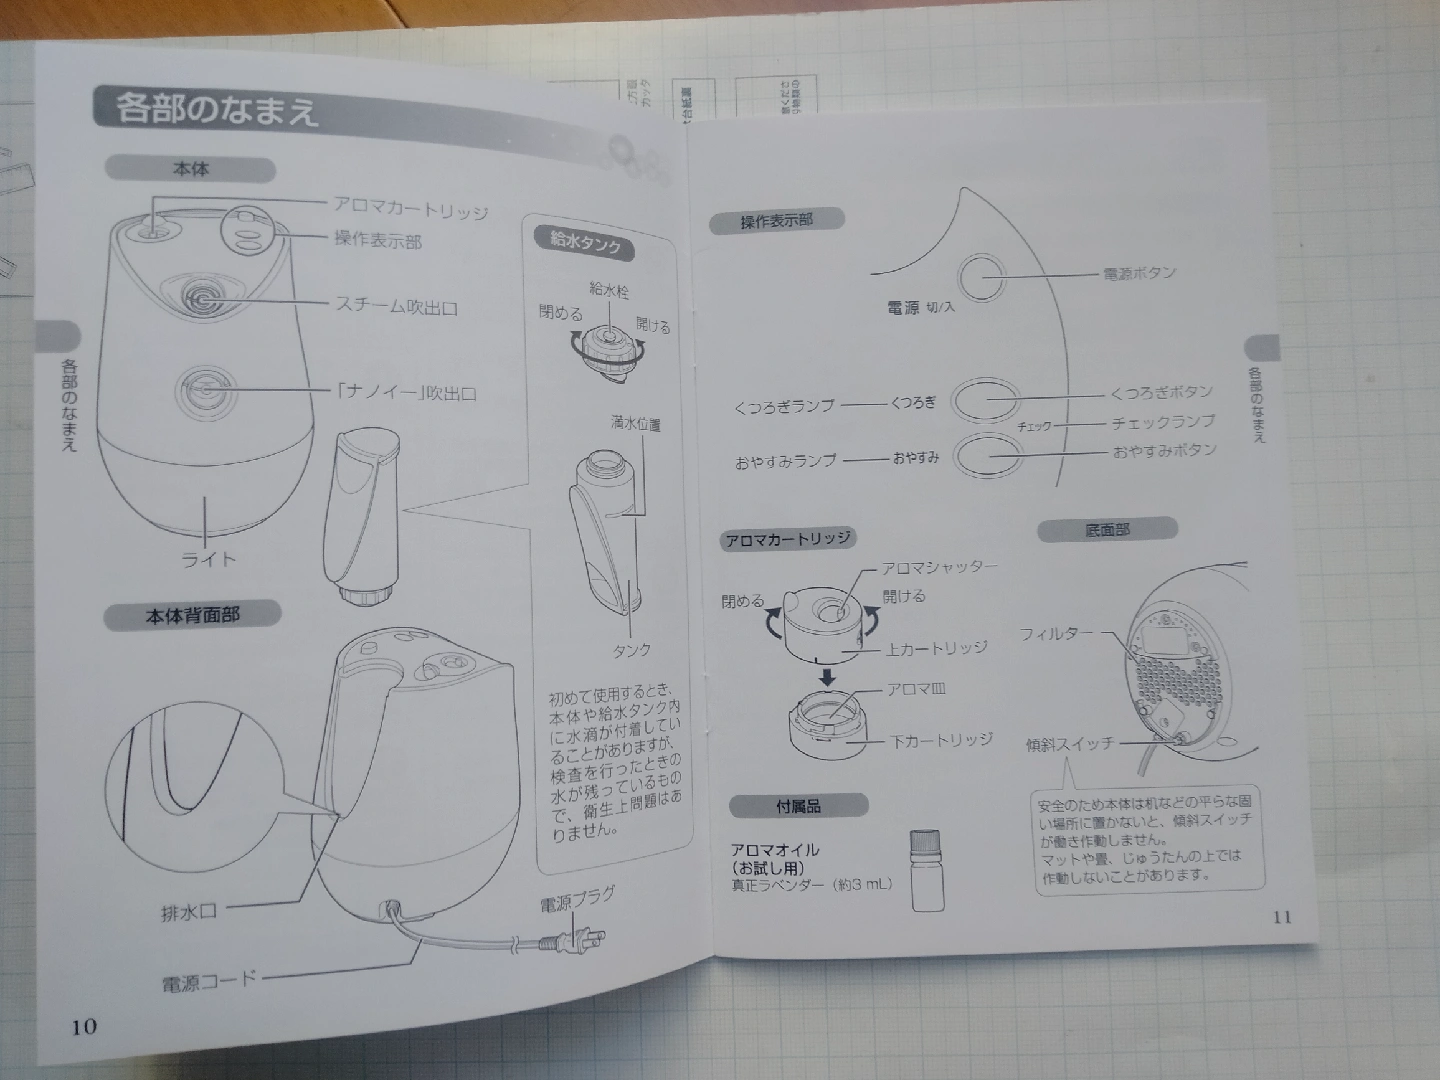 各部のなまえ
本体
アロマカートリッジ
操作表示部
スチーム吹出口
「ナノイー」吹出口
ライト
給水タンク
給水栓
閉める
開ける
満水位置
タンク
初めて使用するとき、
本体や給水タンク内
に水滴が付着してい
ることがありますが、
検査を行ったときの
水が残っているもの
で、衛生上問題はあ
りません。
本体背面部
排水口
電源コード
電源プラグ
各部のなまえ
10
操作表示部
電源ボタン
電源 切/入
くつろぎランプ
くつろぎ
くつろぎボタン
チェック
チェックランプ
おやすみランプ
おやすみ
おやすみボタン
アロマカートリッジ
アロマシャッター
閉める
開ける
上カートリッジ
アロマ皿
下カートリッジ
底面部
フィルター
傾斜スイッチ
安全のため本体は机などの平らな固
い場所に置かないと、傾斜スイッチ
が働き作動しません。
マットや畳、じゅうたんの上では
作動しないことがあります。
付属品
アロマオイル
(お試し用)
真正ラベンダー(約3 mL)
各部のなまえ
11